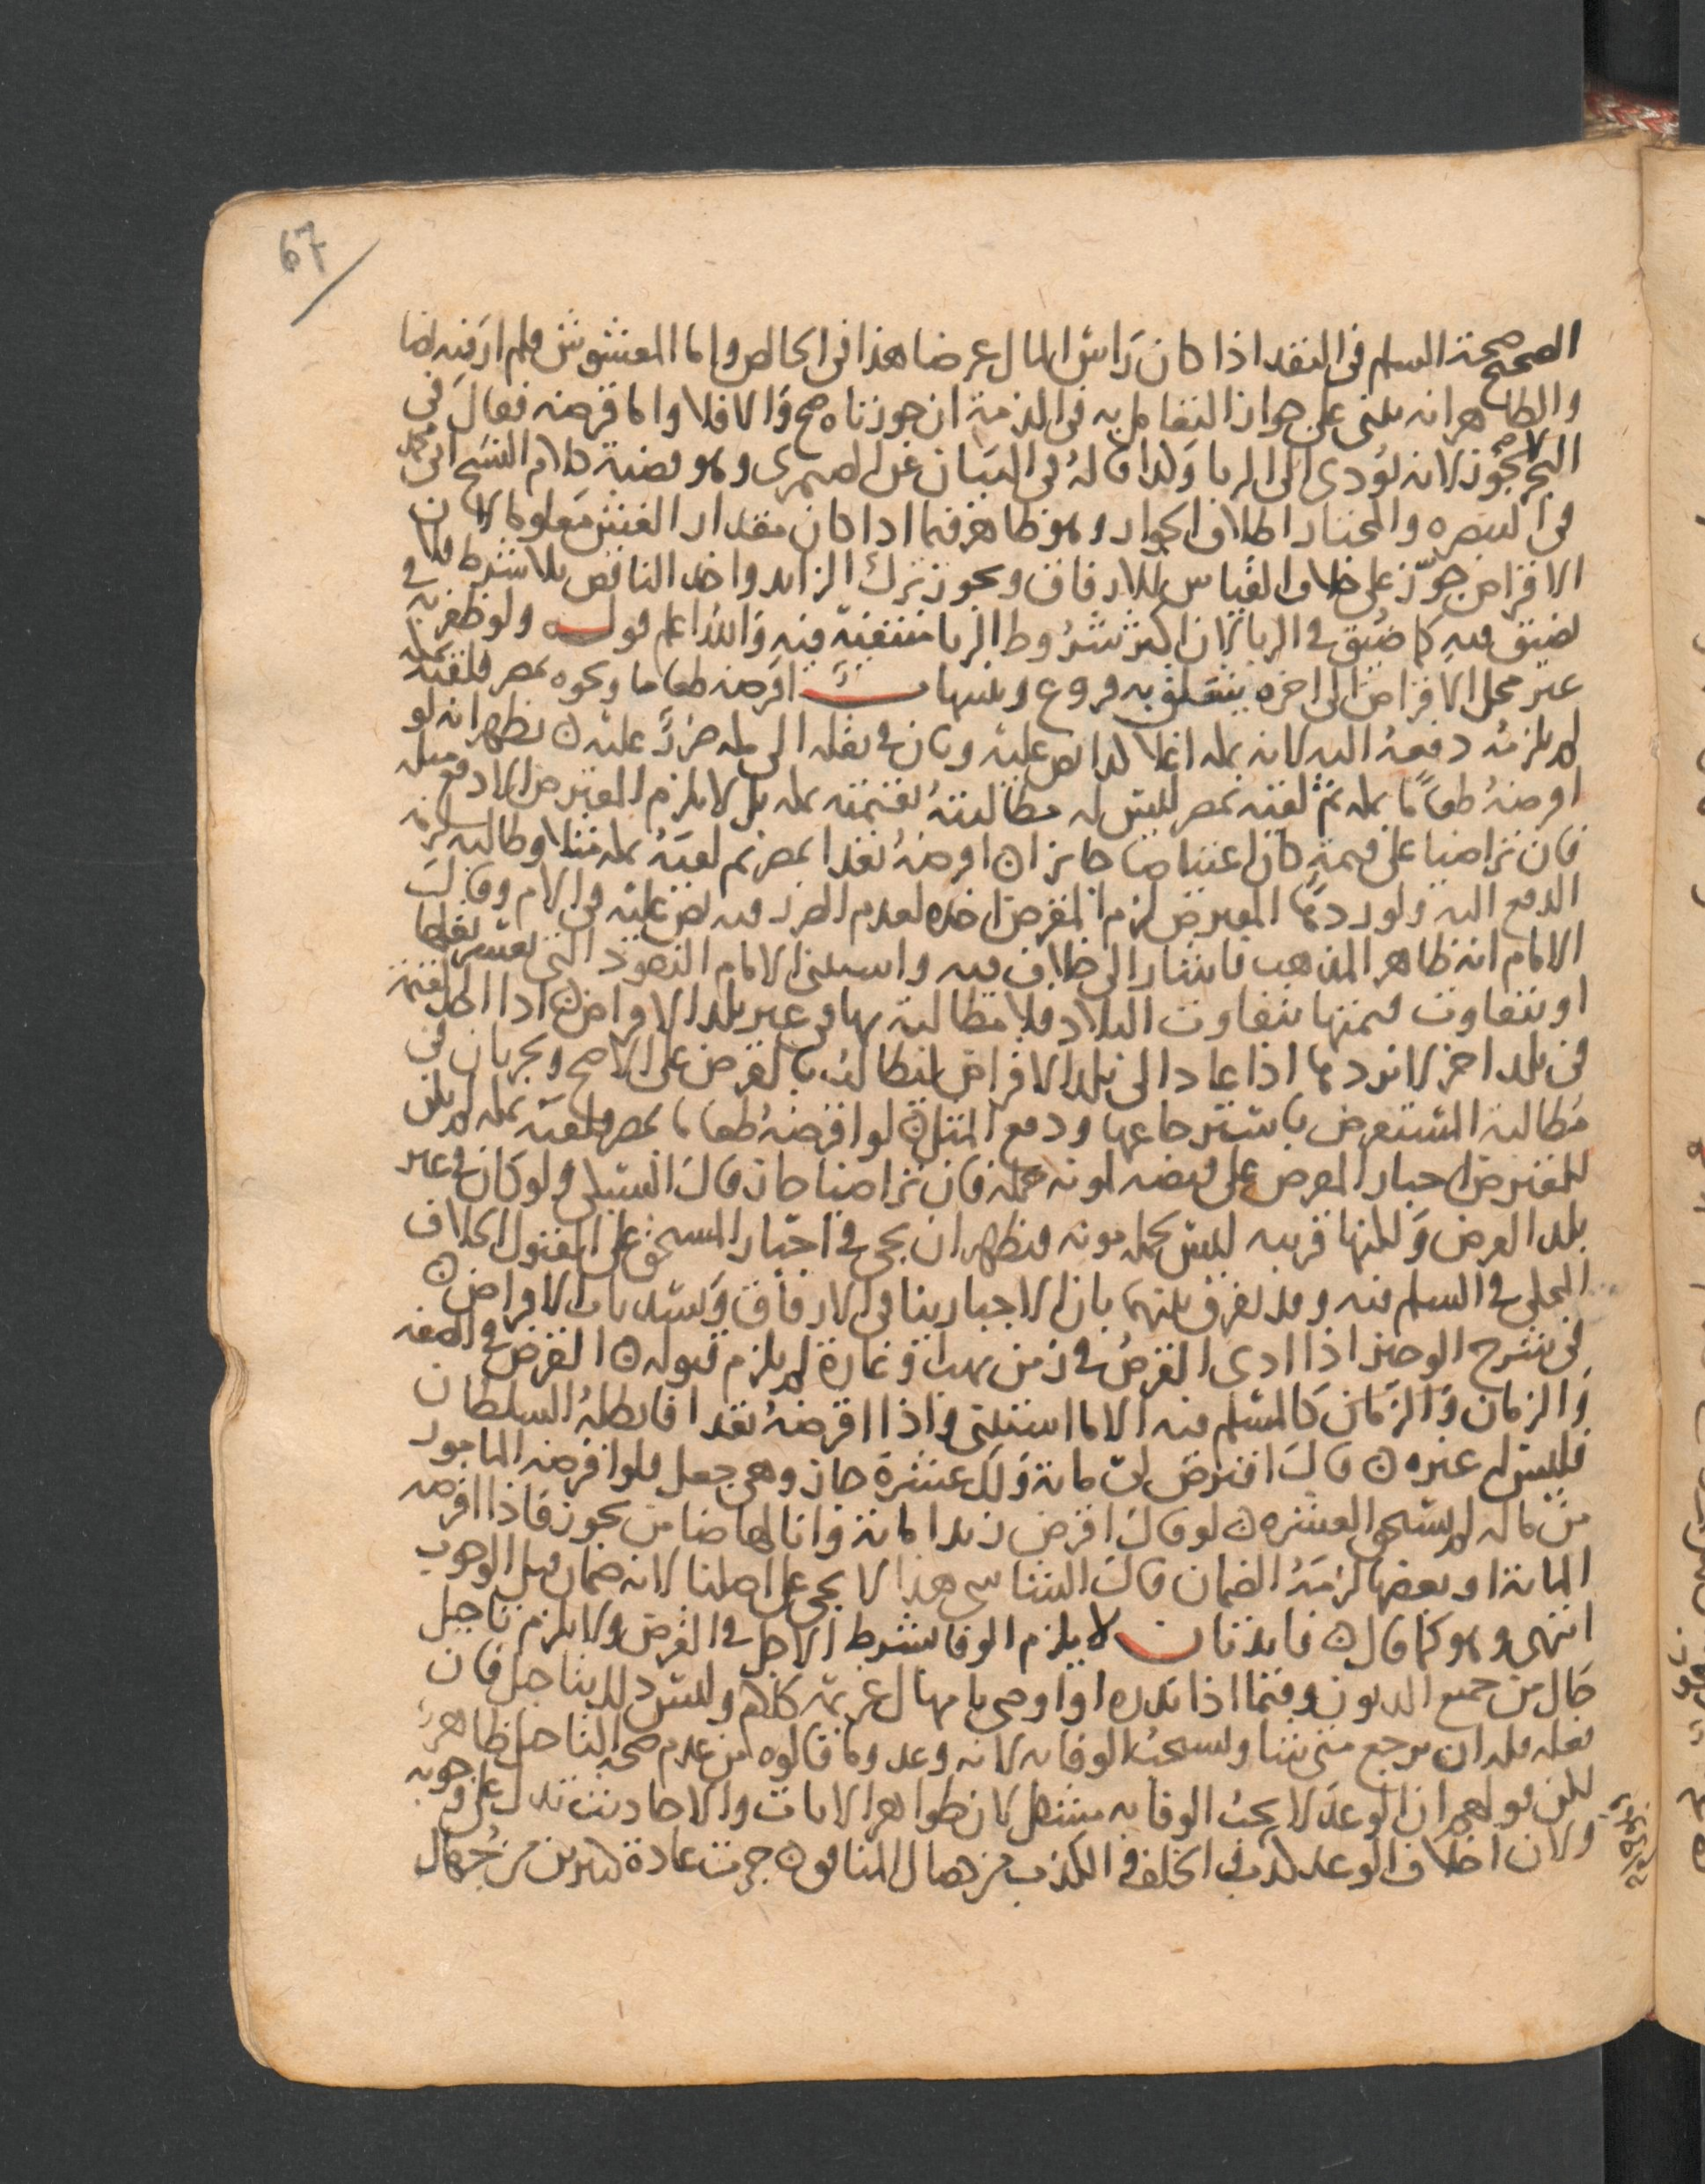 67
الصحيح صحة السلم فى النقد اذا كان راس المال عرضا هذا فى الخالص واما المغشوش فلم ار فيه نصا
والظاهر انه يبنى على جواز التعامل به فى الذمة ان جوزناه صح والا فلا واما قرضه فقال فى
البحر لا يجوز لانه يؤدى الى الربا وكذا قاله فى البيان عن الصيمرى وهو قضية كلام الشيخ ابى محمد
فى التبصره والمختار اطلاق الجواز وهو ظاهر فيما اذا كان مقدار الغش معلوما لان
الاقراض جوّز على خلاف القياس للارفاق ويجوز ترك الزايد واخذ الناقص بلا شرط فلا
يضيق فيه كما ضيق فى الربا لان اكثر شروط الربا منتفية فيه والله اعلم قوله ولو ظفر به فى
غير محل الاقراض الى اخره يتعلق به فروع وتنبيهات اقرضه طعاما ونحوه بمصر فلقيه بمكه
لم يلزمه دفعه اليه لانه بمكه اغلا كذا نص عليه وبان فى نقله الى مكه ضررا عليه ن يظهر انه لو
اقرضه طعاما بمكه ثم لقيه بمصر ليس له مطالبته بقيمته بمكه بل لا يلزم المقترض الا دفع مثله
فان تراضيا على قيمته كان اعتياضا جايزا ن اقرضه نقدا بمصر ثم لقيه بمكه مثلا وطالبه لزمه
الدفع اليه ولو ردها المقترض لزم المقرض اخذه لعدم الضرر فيه نص عليه فى الام وقال
الامام انه ظاهر المذهب فاشار الى خلاف فيه واستثنى الامام النقود التى يعسر نقلها
او تتفاوت قيمتها بتفاوت البلاد فلا مطالبة بها فى غير بلد الاقراض ن اذا اخذ القيمة
فى بلد اخر لا يردها اذا عادا الى بلد الاقراض ليطالبه بالقرض على الاصح ويجريان فى
مطالبة المستقرض باسترجاعها ودفع المثل ن لو اقرضه طعاما بمصر فلقيه بمكه لم يكن
للمقترض اجبار المقرض على قبضه لمونة حمله فان تراضيا جاز قال السبكى ولو كان فى غير
بلد القرض ولكنها قريبه ليس لحمله مونه فيظهر ان يجى فى اجبار المستحق على القبول الخلاف
المحكى فى السلم فيه وقد يفرق بينهما بان الاجبار ينافى الارفاق ويسد باب الاقراض ن
فى شرح الوجيز اذا ادى القرض فى زمن نهب او غارة لم يلزم قبوله ن القرض فى الصفه
والزمان والزمان كالمسلم فيه الا ما استثنى واذا اقرضه نقدا فابطله السلطان
فليس له غيره ن قال اقترض لى ماية ولك عشرة جاز وهى جعل فلو اقرضه المامور
من ماله لم يستحق العشره ن لو قال اقرض زيدا ماية وانا لها ضامن يجوز فاذا اقرضه
الماية او بعضها لزمه الضمان قال الشاشى هذا لا يجى على اصلنا لانه ضمان قبل الوجوب
انتهى وهو كما قال ن فايدتان لا يلزم الوفا بشرط الاجل فى القرض ولا يلزم تاجيل
حال من جميع الديون وفيما اذا نذره او اوصى بامهال غريمه كلام وليس ذلك بتاجيل فان
فعله فله ان يرجع متى شا ويستحب الوفا به لانه وعد وما قالوه من عدم صحة التاجيل ظاهر
لكن قولهم ان الوعد لا يجب الوفا به مشكل لان ظواهر الايات والاحاديث تدل على وجوبه
ولان اخلاف الوعد كذب والخلف والكذب من خصال المنافق ن جرت عادة كثيرين من جهال